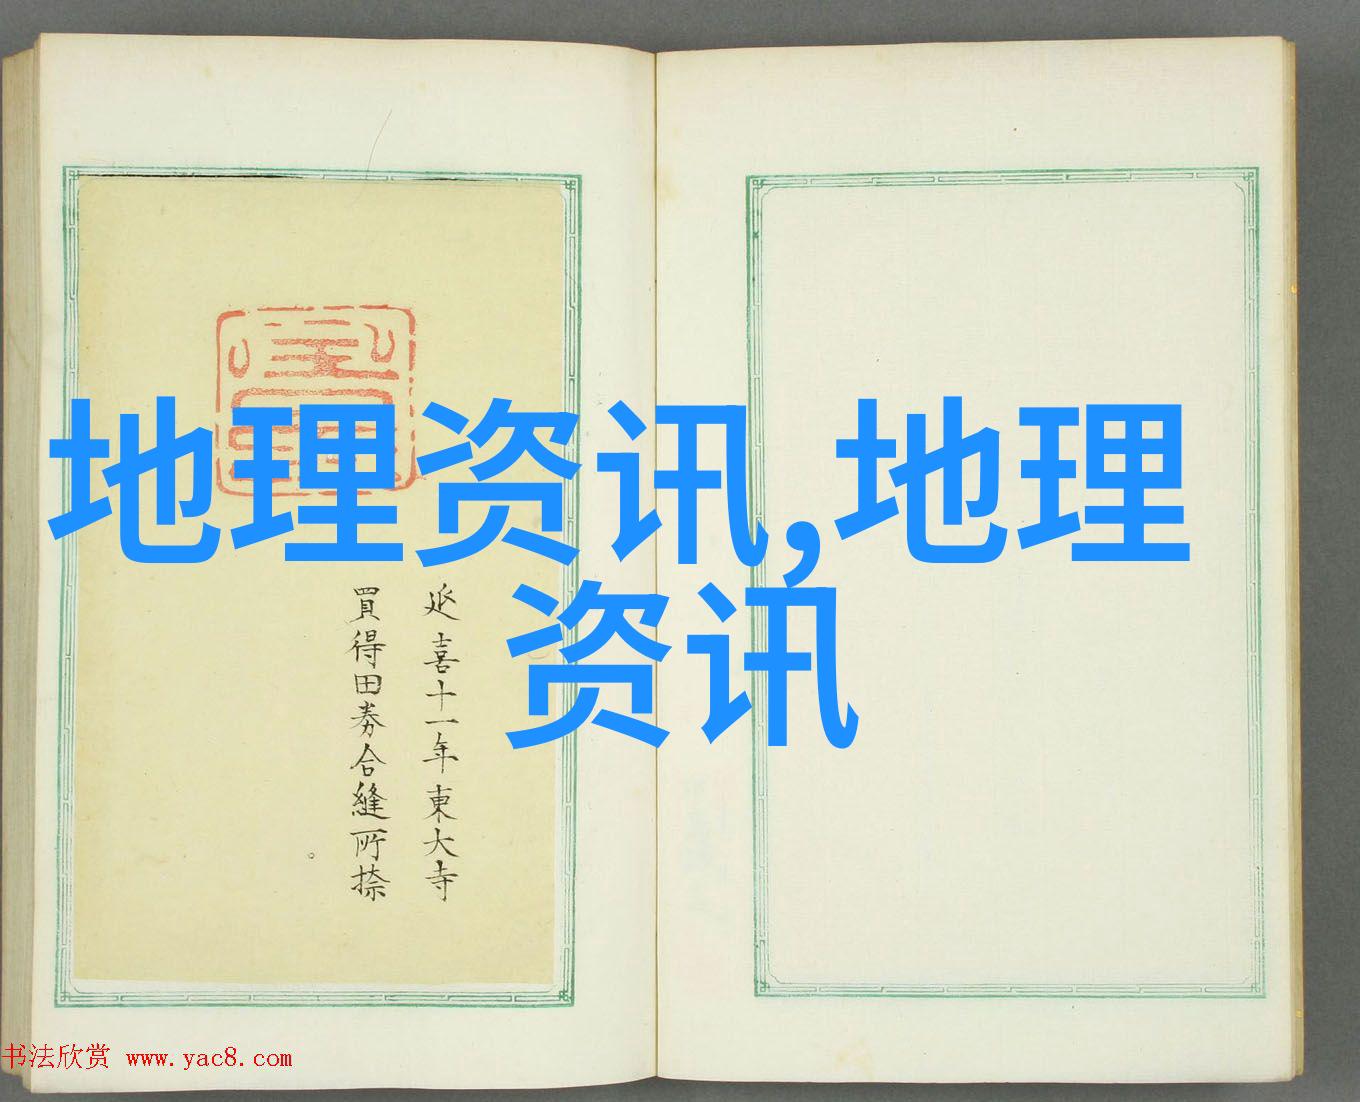 地理资讯,地理
资讯
延喜十一年東大寺
買得田券合縫所捺
书法欣赏 www.yac8.com